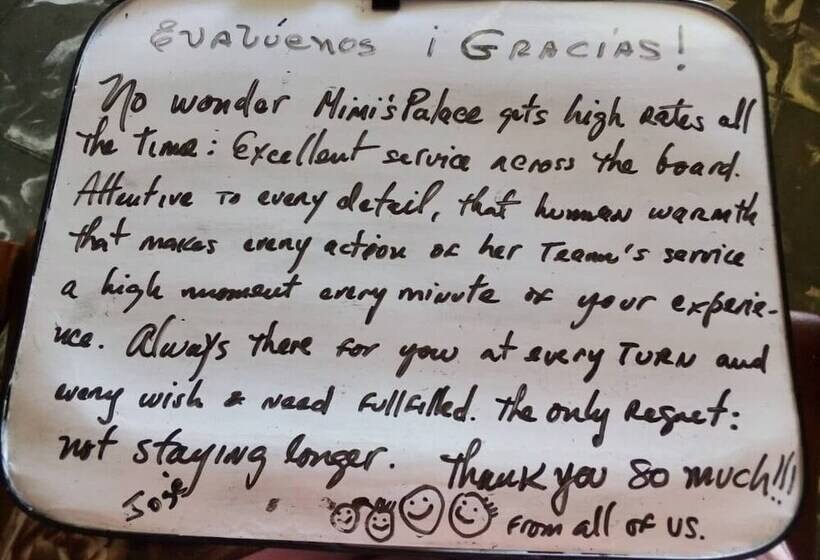 Evalúenos ¡ GRACIAS!
No wonder Mimi's Palace gets high rates all
the time: Excellent service across the board.
Attentive to every detail, that human warmth
that makes every action of her Team's service
a high moment every minute of your experie-
nce. Always there for you at every TURN and
every wish & need fullfilled. The only Regret:
not staying longer. Thank you so much!!!
from all of us.